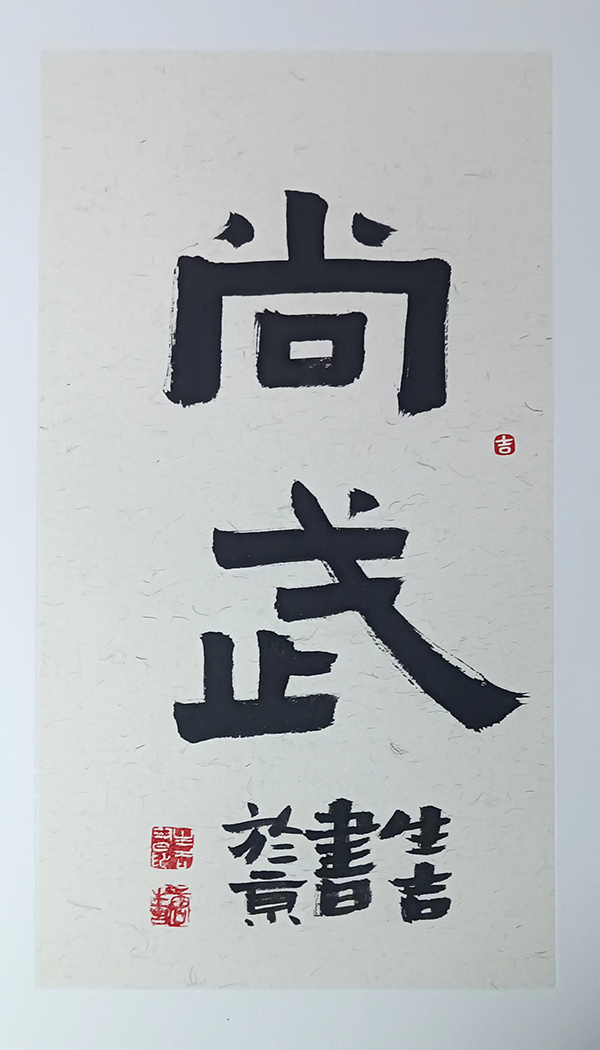 尚武
生吉
書
於京
吉